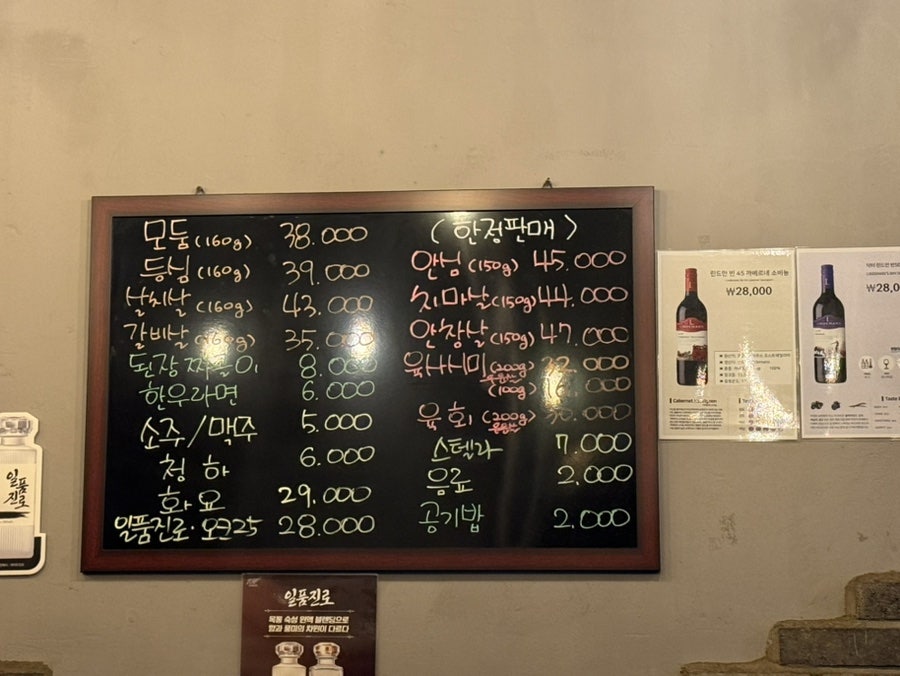 모둠(160g) 38.000
등심(160g) 39.000
살치살(160g) 43.000
갈비살(160g) 35.000
된장 8.000
한우라면 6.000
소주/맥주 5.000
청하 6.000
화요 29.000
일품진로·오크25 28.000
(한정판매)
안심(150g) 45.000
치마살(150g) 44.000
안창살(150g) 47.000
육사시미(200g)
(100g)
육회(200g)
스텔라 7.000
음료 2.000
공기밥 2.000
린드만 빈 45 까베르네 소비뇽
₩28,000
일품
진로
일품진로
목통 숙성 원액 블렌딩으로
향과 풍미의 차원이 다르다